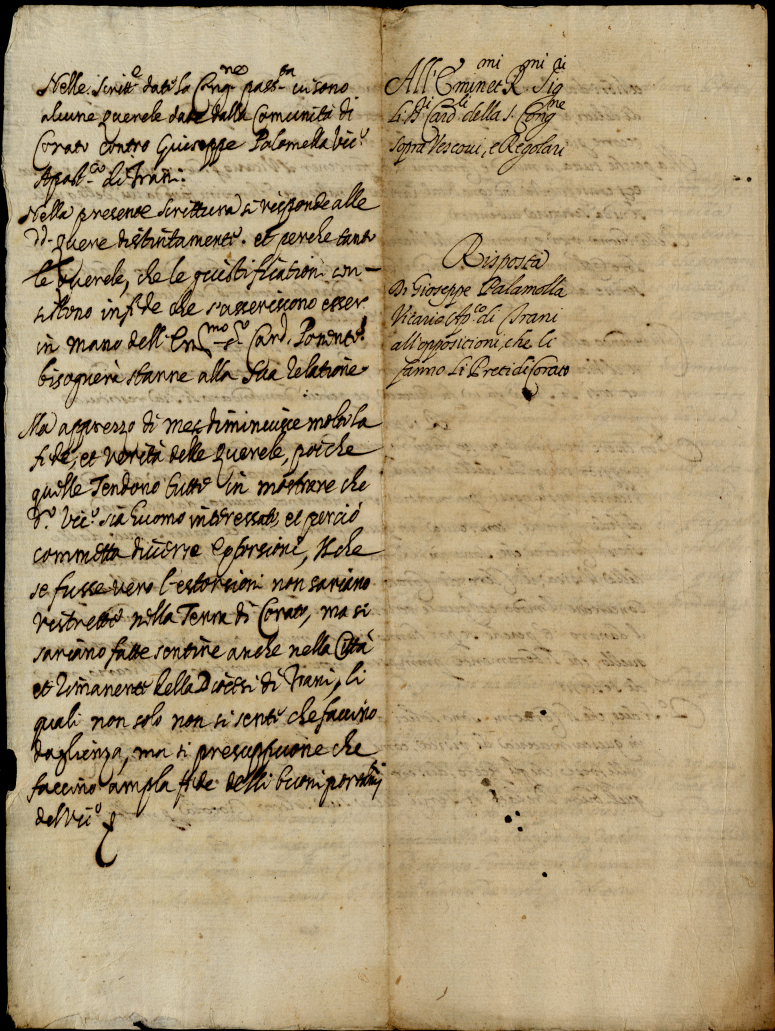 Nelle Scritt.e date la Cong.ne pass.ta vi sono
alcune querele date dalla Comunità di
Corato contro Giuseppe Palamella Vic.o
Apost.co di Trani.
Nella presente scrittura si risponde alle
dd. quere distintamente. et perche tanto
le querele, che le giustificationi con-
sistono in fede che s'asseriscono esser
in mano dell' Em.mo S.r Card. Ponente
bisognerà starne alla sua relatione
Ma apprezzo di me diminuisce molto la
fede, et verità delle querele, poiche
quelle tendono tutte in mostrare che
d.o Vic.o sia huomo interessato, et perciò
commetta diverse estorsioni, Il che
se fusse vero l'estorsioni non sariano
ristrette nella Terra di Corato, ma si
sariano fatte sentire anche nella Città
et rimanente della Diocesi di Trani, li
quali non solo non si sente che faccino
doglienza, ma si presuppone che
faccino ampla fede delli buoni portam.ti
del Vic.o
All' Emin.mi et R.mi Sig.ri
Li SS.ri Card.li della S. Cong.ne
sopra Vescovi, e Regolari
Risposta
Di Gioseppe Palamolla
Vicario Ap.co di Trani
all'oppositioni, che li
fanno li Preti di Corato